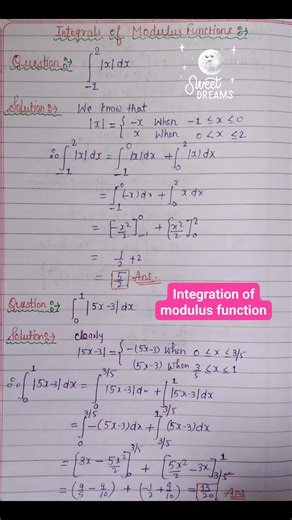 Integrals of Modulus Functions:→
Question:→ ∫₋₁² |x| dx
Sweet
DREAMS
Solution:→ We know that
|x| = { -x When -1 ≤ x ≤ 0
x When 0 < x ≤ 2
∴ ∫₋₁² |x| dx = ∫₋₁⁰ |x| dx + ∫₀² |x| dx
= ∫₋₁⁰ (-x) dx + ∫₀² x dx
= [-x²/2]₋₁⁰ + [x²/2]₀²
= 1/2 + 2
= 5/2 Ans.
Integration of
modulus function
Question:→ ∫₀¹ |5x-3| dx
Solution:→ clearly
|5x-3| = { -(5x-3) When 0 < x ≤ 3/5
(5x-3) When 3/5 ≤ x ≤ 1
∴ ∫₀¹ |5x-3| dx = ∫₀^3/5 |5x-3| dx + ∫_3/5^1 |5x-3| dx
= ∫₀^3/5 -(5x-3) dx + ∫_3/5^1 (5x-3) dx
= [3x - 5x²/2]₀^3/5 + [5x²/2 - 3x]_3/5^1
= (9/5 - 9/10) + (-1/2 + 9/10) = 13/20 Ans